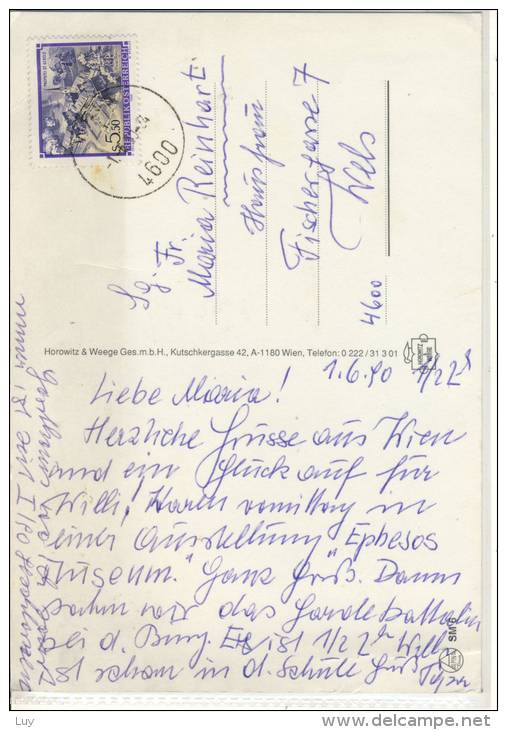 REPUBLIK ÖSTERREICH
S 5.50
4600
Sg. Fr.
Maria Reinhart
Hausfrau
Fischergasse 7
Wels
4600
Horowitz & Weege Ges.m.b.H., Kutschkergasse 42, A-1180 Wien, Telefon: 0 222 / 31 3 01
1.6.90 1/22h
Liebe Maria!
Herzliche Grüsse aus Wien
und ein Glück auf für
Willi! Waren vormittag in
einer Ausstellung "Ephesos
Museum." Ganz groß. Dann
sahn wir das Gardebattalion
bei d. Burg. Es ist 1/22h Willi
ist schon in d. Schule
SM 6
Luy
www.delcampe.net